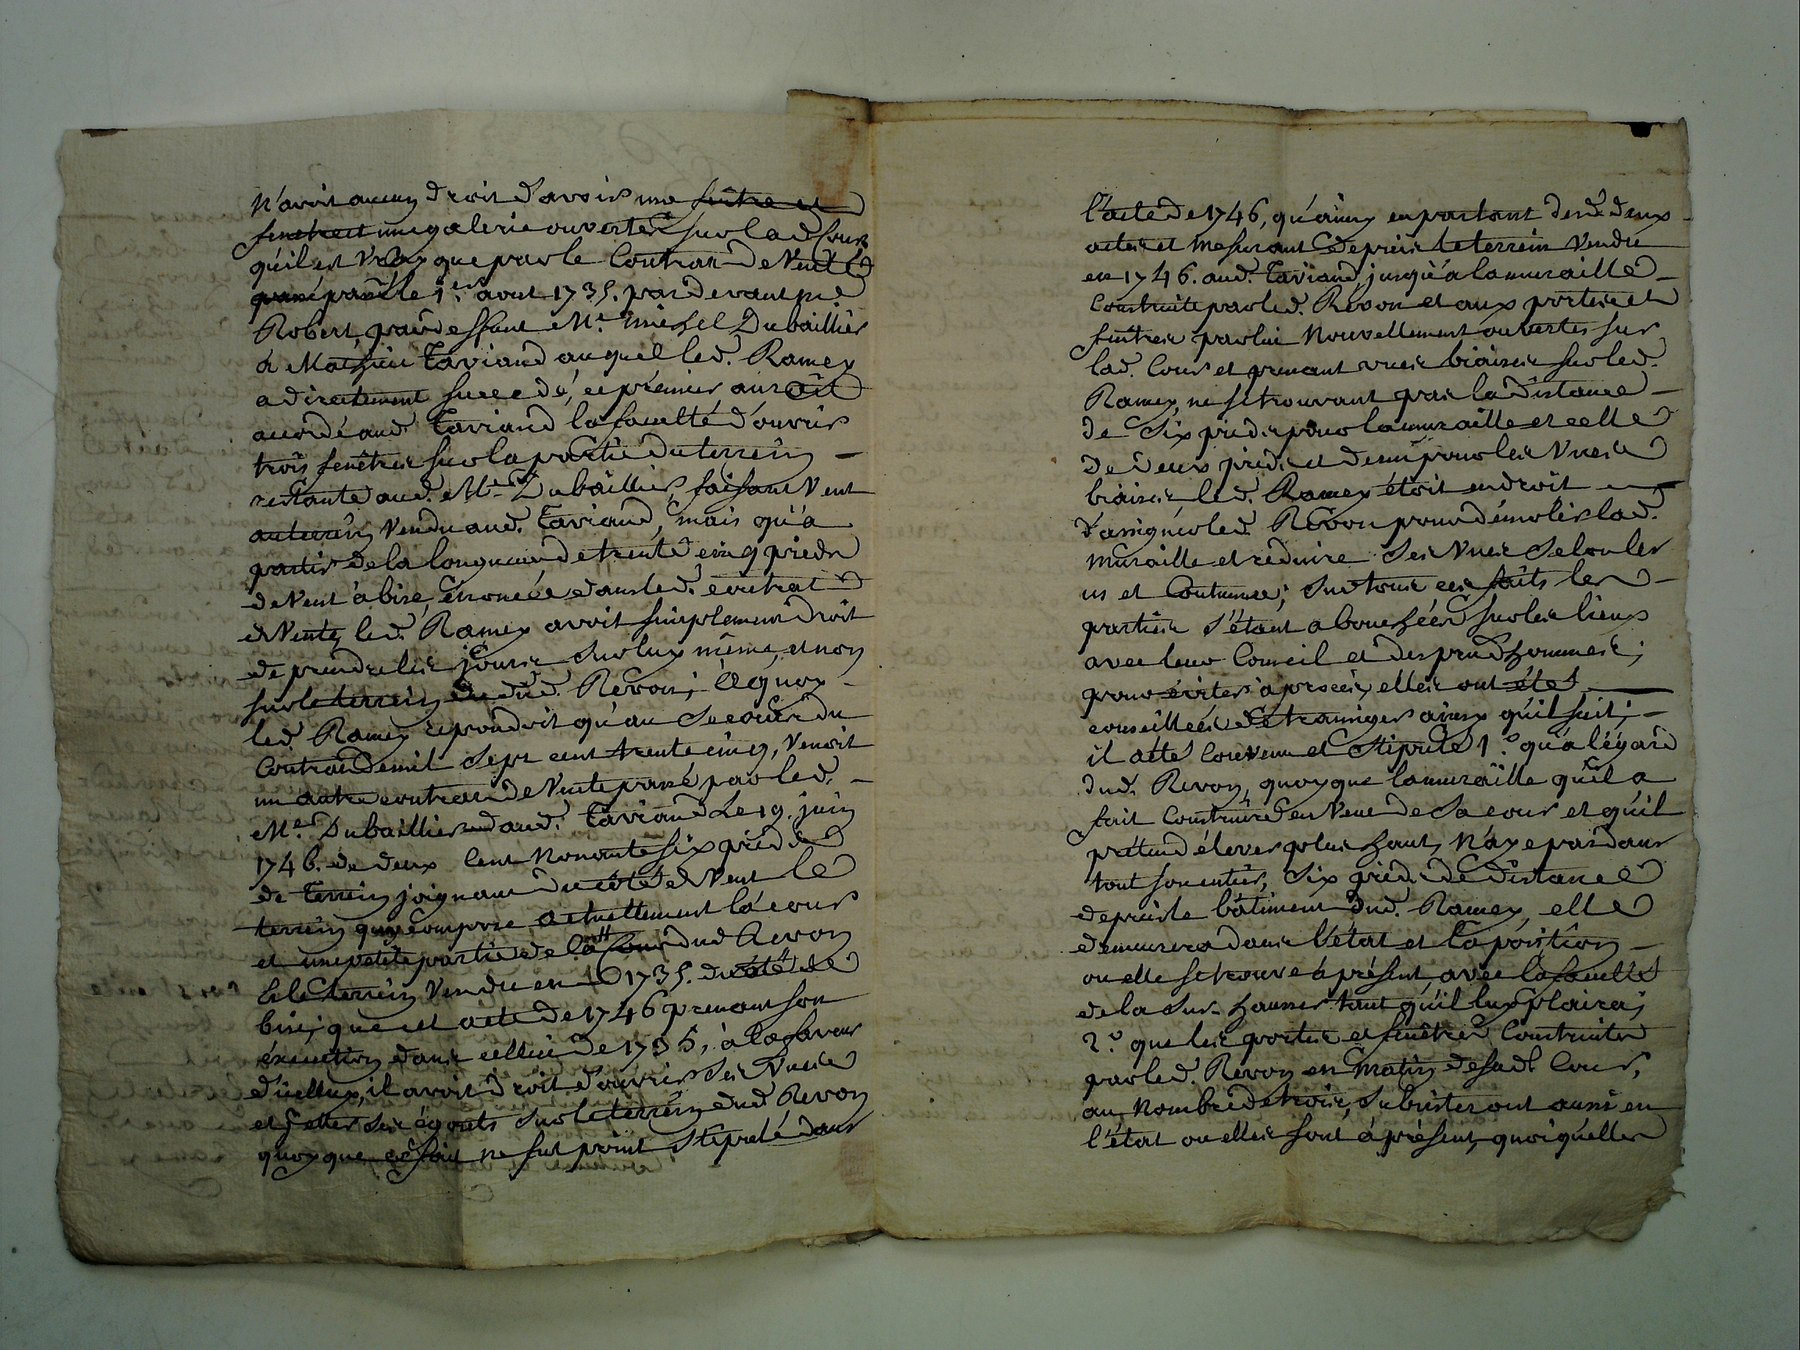 N'avoit aucun droit d'avoir une fenêtre et
fenetre et une galerie ouvertes sur lad. Cour
qu'il est vray que par le Contrat de Vente
passé le 1er. aout 1735. pardevant me.
Robert, par deffunt Mr. Michel Dubaillier
à Mathieu Taviand auquel led. Ramey
a directement succedé, ce prémier auroit
accordé aud. Taviand la faculté d'ouvrir
trois fenêtres sur la partie du terrein
restante aud. Mr. Dubaillier, faisant vent
au terrein vendu aud. Taviand, mais qu'à
partir de la longueur de trente cinq pieds
de Vent à bise, énoncée dans led. contrat
de Vente, led. Ramey avoit simplement droit
de prendre les jours sur luy même, et non
sur le terrein dud. Revon; à quoy
led. Ramey repondoit qu'au secours du
Contrat de mil sept cent trente cinq, venoit
un autre contrat de Vente passé par led.
Mr. Dubaillier aud. Taviand Le 19. juin
1746. de deux cent nonante six pieds
de terrein joignant du côté de Vent le
terrein qui compose actuellement la cour
et une petite partie de la dud. Revon
Et le terrein vendu en 1735. du côté de
bise; que cet acte de 1746 prenant son
éxécution dans celluy de 1735, à la faveur
d'icelluy, il avoit droit d'ouvrir ses Vues
et jetter ses égouts sur le terrein dud. Revon
quoy que ce fait ne fut point stipulé dans
l'acte de 1746, qu'ainsy en partant desd. deux
actes et mesurant depuis le terrein vendu
en 1746. aud. Taviand, jusqu'à la muraille
Construite par led. Revon et aux portes et
fenêtres par lui nouvellement ouvertes sur
lad. Cour et prenant vues biaises sur led.
Ramey, ne se trouvant pas la distance
de six pieds pour la muraille et celle
de deux pieds et demi pour les Vues
biaises led. Ramey étoit en droit
d'assigner led. Revon pour démolir lad.
muraille et réduire ses vues selon les
us et Coutumes; sur tous ces faits les
parties s'étant abouchées sur les lieux
avec leur Conseil et des prudhommes;
pour éviter à procès, elles ont étés
conseillées de transiger ainsy qu'il suit;
il a été convenu et stipulé 1.° qu'a l'égard
dud. Revon, quoy que la muraille qu'il a
fait construire du Vent de sa cour et qu'il
prétend élever plus haut, n'aye pas dans
tout son entier, six pieds de distance
depuis le bâtiment dud. Ramey, elle
demeurera dans l'état et la position
ou elle se trouve à présent, avec la faculté
de la sur-hausser tant qu'il luy plaira;
2.° que les portes et fenêtres Construites
par led. Revon en matin de sad. Cour,
au nombre de trois, subsisteront aussi en
l'état ou elles sont à présent, quoiqu'elles